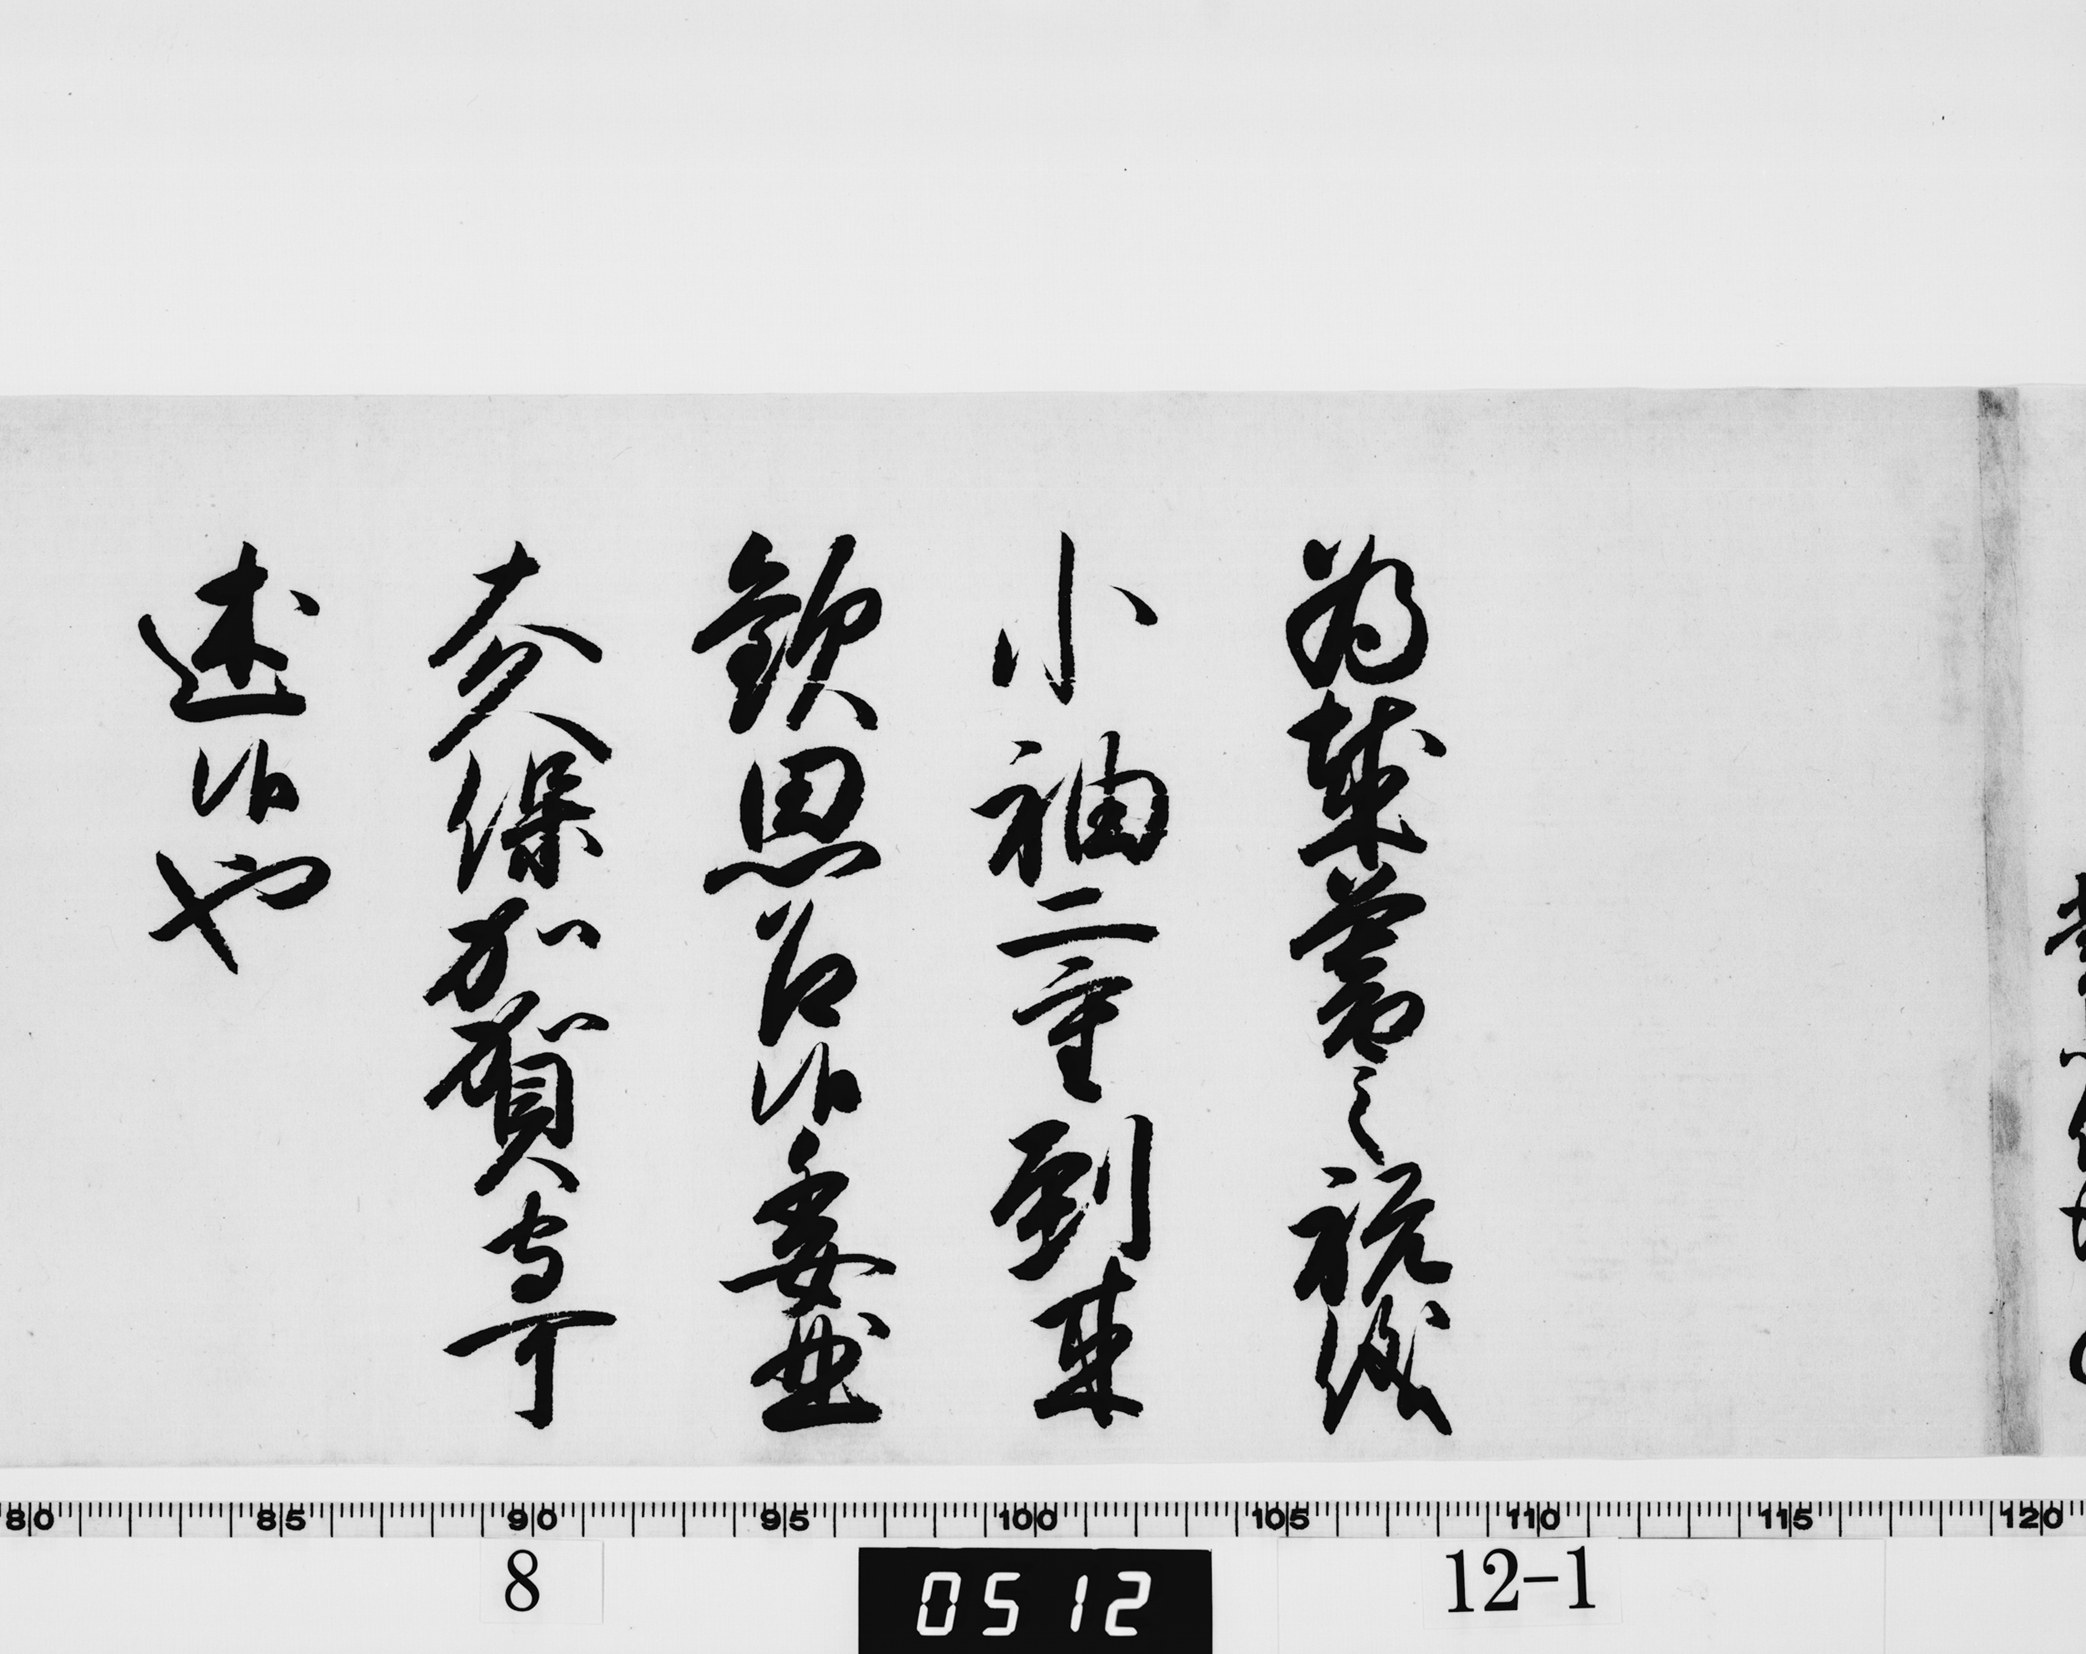 為歳暮之祝儀
小袖二重到来
歓思召候委曲
大久保加賀守可
述候也
80 85 90 95 100 105 110 115 120
8 0512 12-1